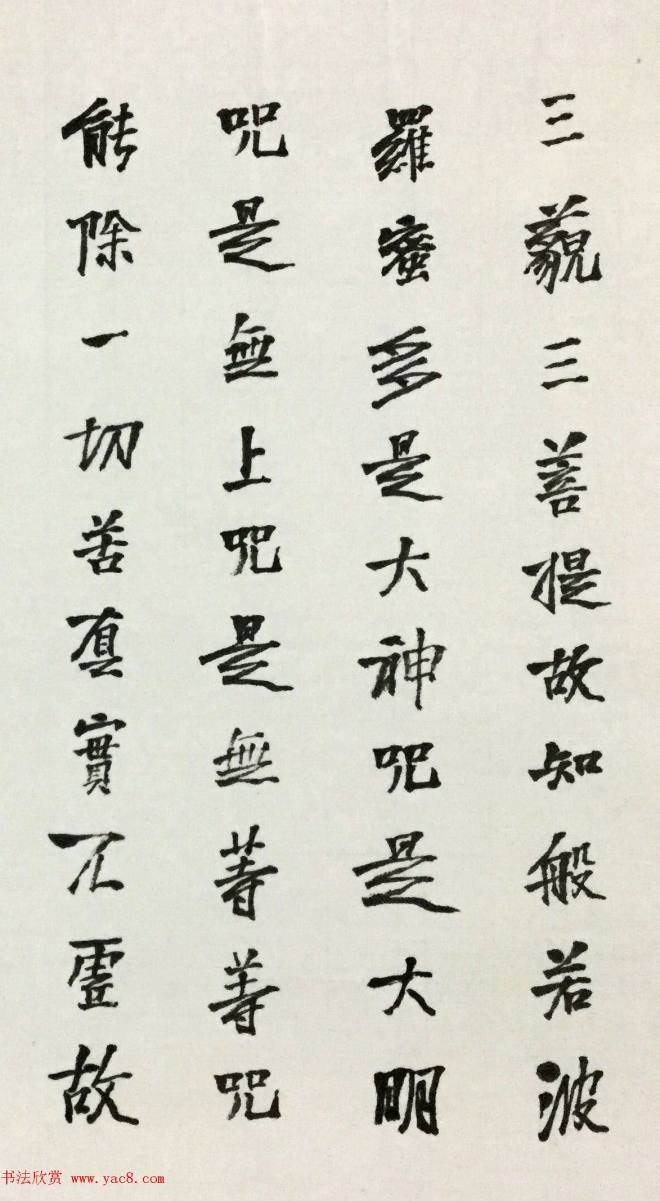 三藐三菩提故知般若波
羅蜜多是大神咒是大明
咒是無上咒是無等等咒
能除一切苦真實不虛故
书法欣赏 www.yac8.com